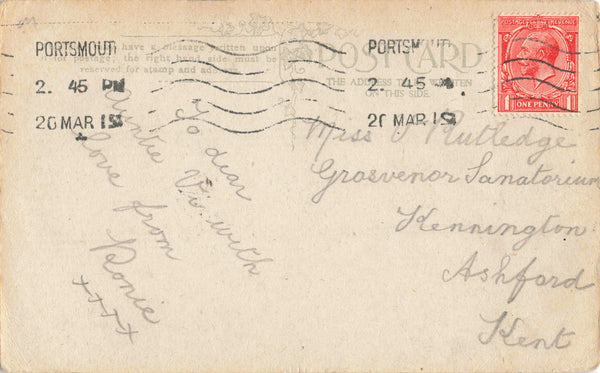 PORTSMOUT
2. 45 PM
20 MAR 19
PORTSM UT
2. 45
20 MAR 19
have a message written upon
for postage, the right hand side must be
reserved for stamp and
POST CARD
THE ADDRESS TO BE WRITTEN
ON THIS SIDE.
POSTAGE REVENUE
ONE PENNY
To dear
Auntie Vi. with
love from
Ronie
++++x
Miss V Rutledge
Grosvenor Sanatorium
Kennington
Ashford
Kent